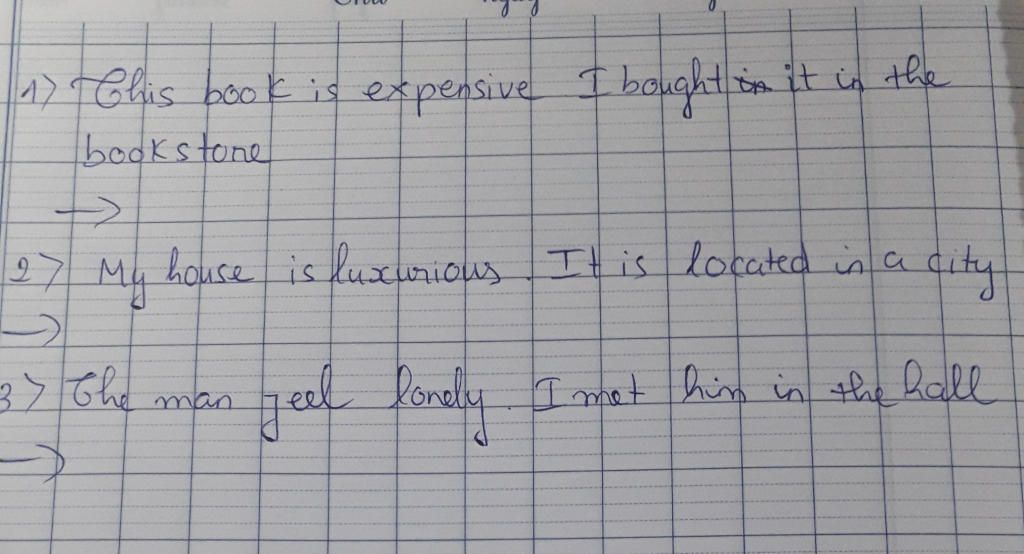 1) This book is expensive I bought it in the
bookstone
→
2) My house is luxurious. It is located in a city
→
3) The man feel lonely. I met him in the hall
→